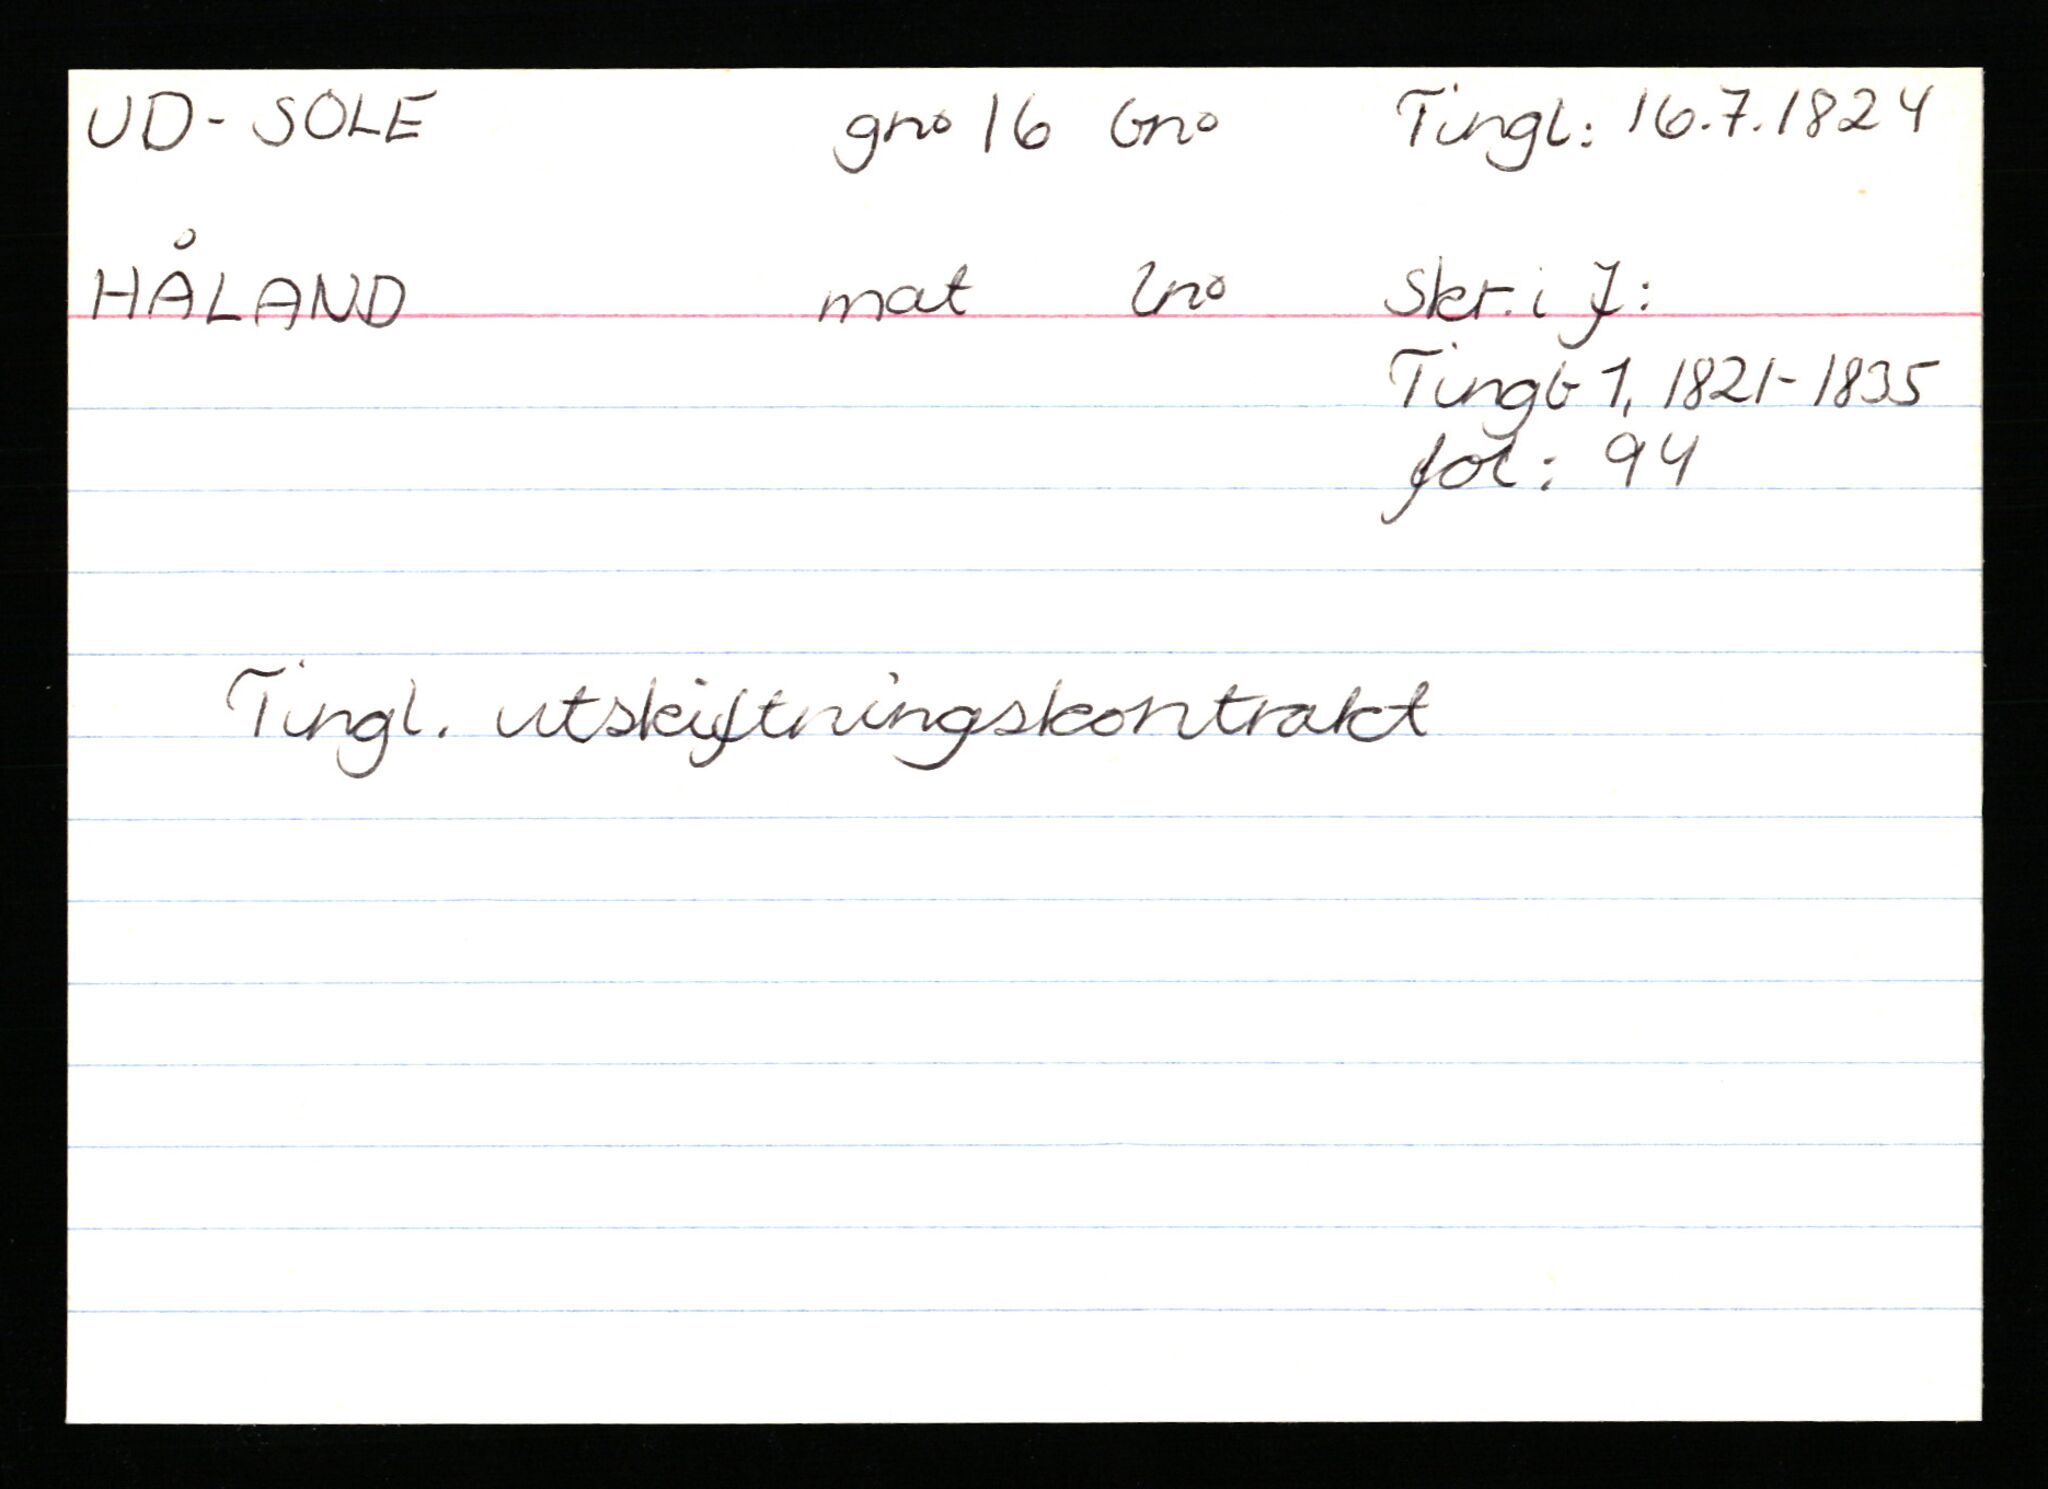 UD-SOLE gno 16 bno Tingl: 16.7.1824
HÅLAND mat lno Skr. i J:
Tingb 1, 1821-1835
fol: 94
Tingl. utskiftningskontrakt